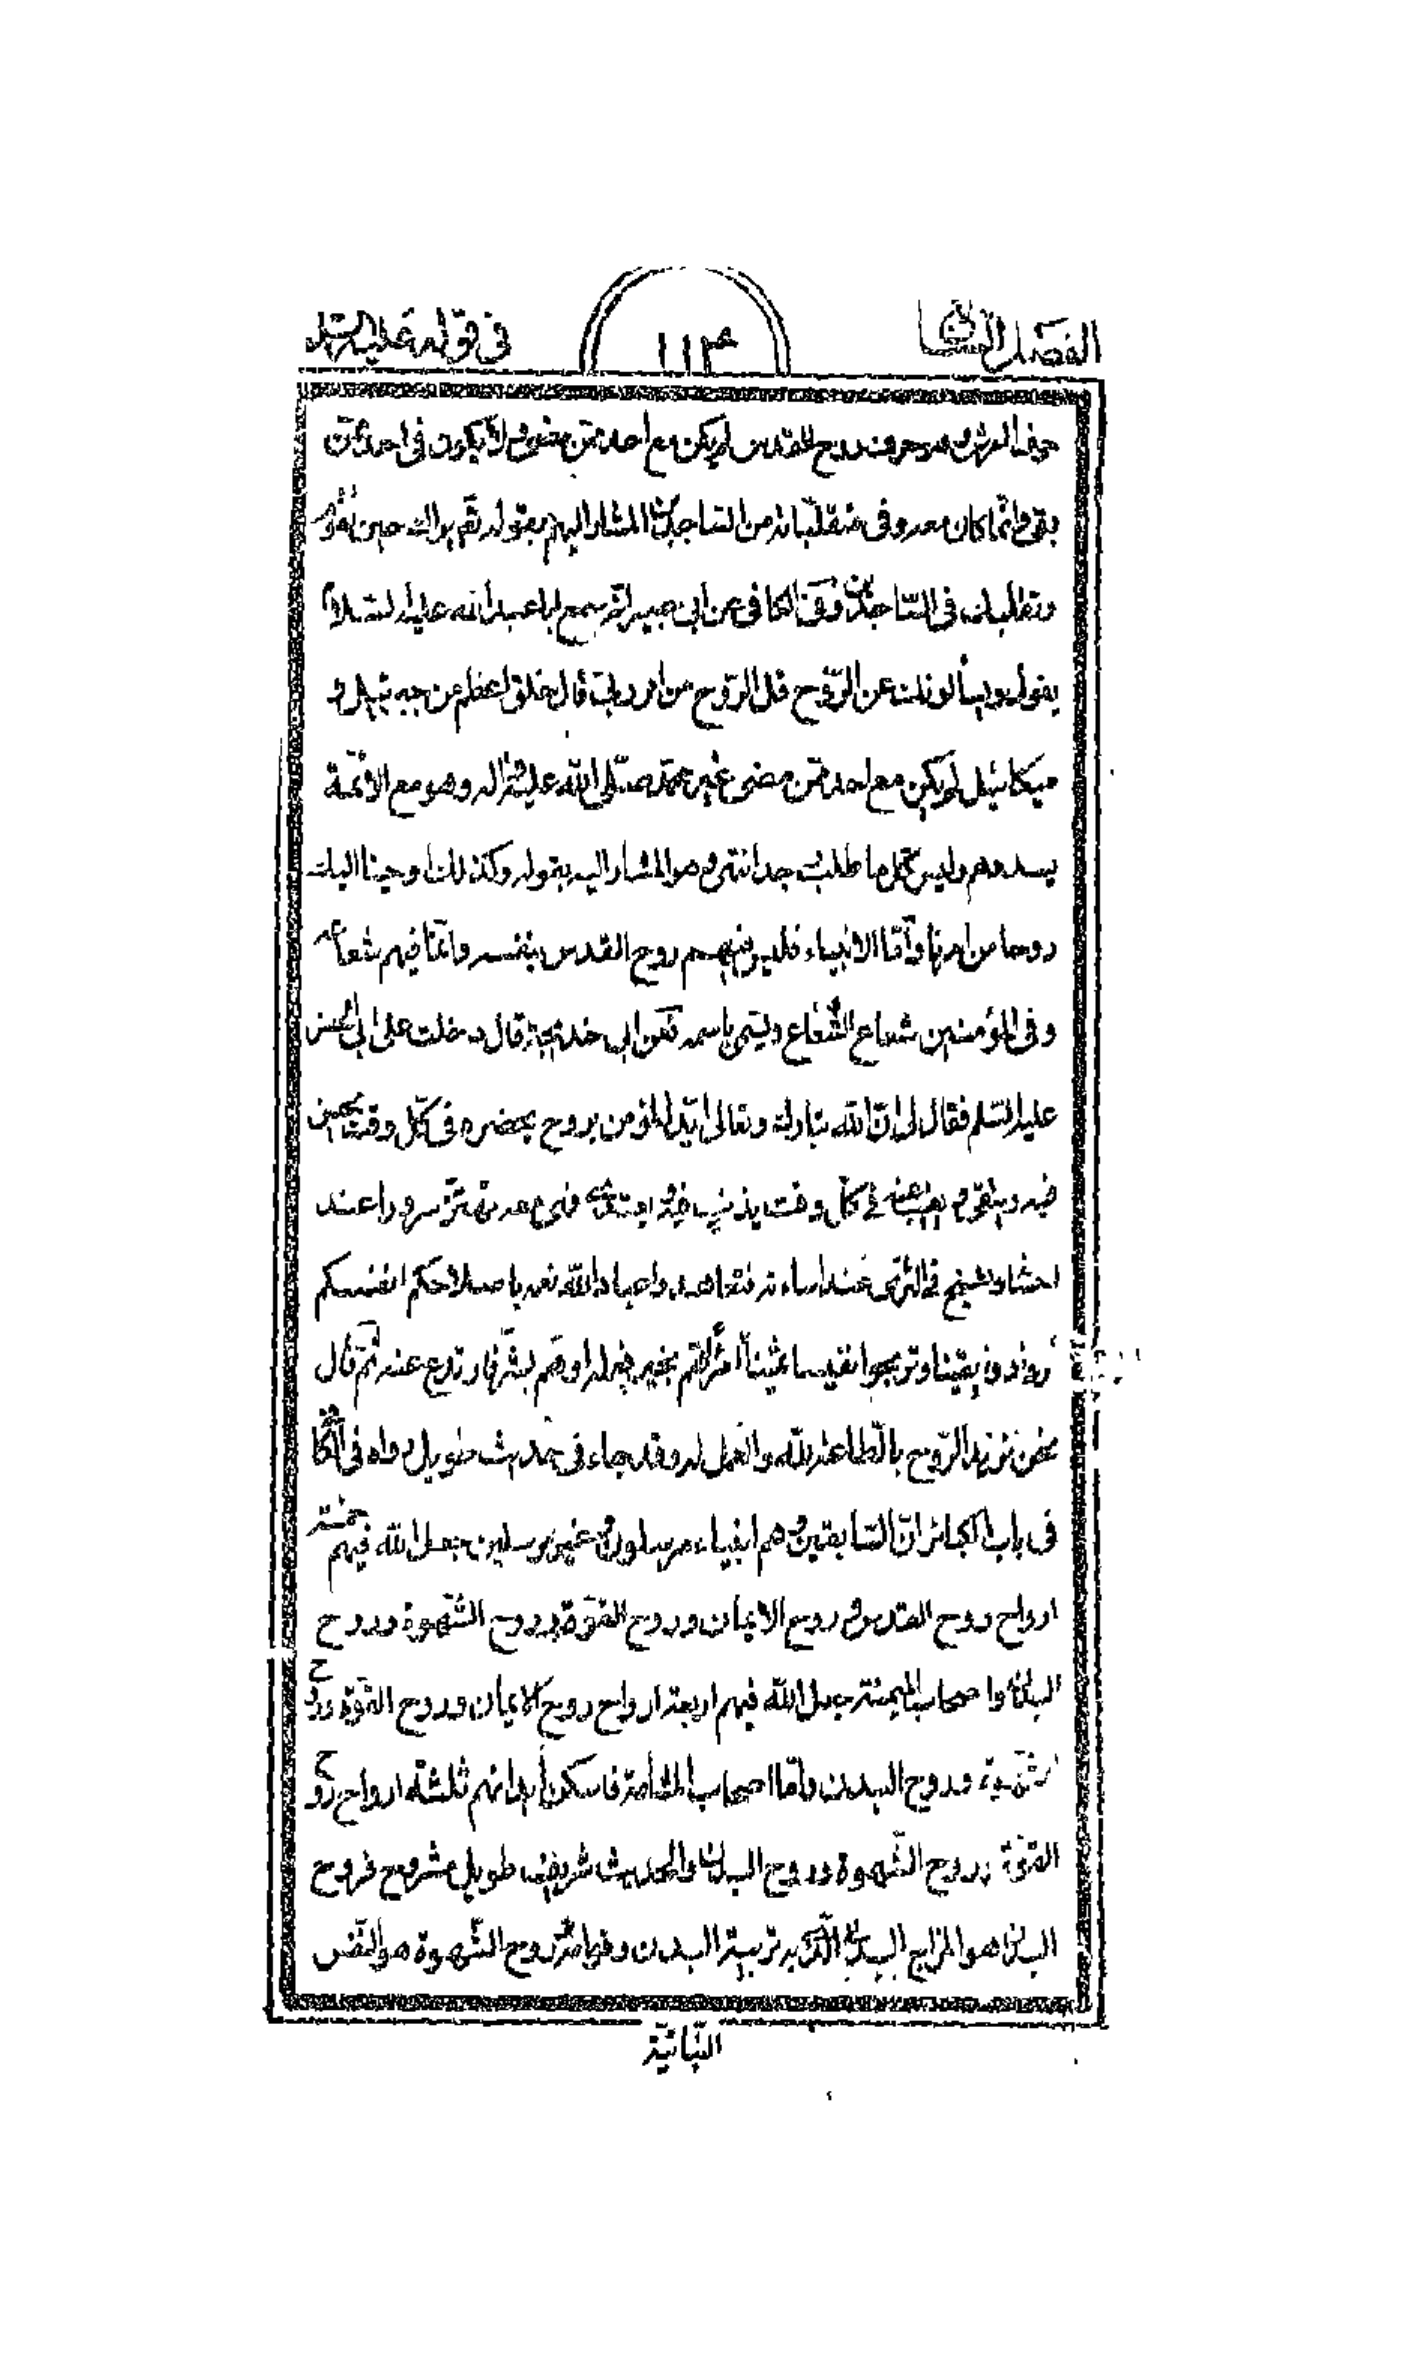 الفصل الثانی
۱۱۴
فی قوله علیه السلام
روح القدس لم یکن مع احد ممن مضی ولا یکون فی احد ممن
بقی وانما کان معه وفی متقلباته من الساجدین المشار الیهم بقوله تعم یراک حین تقوم
وتقلبک فی الساجدین وفی الکافی عن ابی بصیر انه سمع ابا عبد الله علیه السلام
یقول ویسألونک عن الروح قل الروح من امر ربی قال خلق اعظم من جبرئیل و
میکائیل لم یکن مع احد ممن مضی غیر محمد صلی الله علیه وآله وهو مع الائمة
یسددهم ولیس کلما طلب وجد انتهی وهو المشار الیه بقوله وکذلک اوحینا الیک
روحا من امرنا واما الانبیاء فلیس فیهم روح القدس بنفسه وانما فیهم شعاعه
وفی المؤمنین شعاع الشعاع ویسمی باسمه فعن ابی خدیجة قال دخلت علی ابی الحسن
علیه السلم فقال لی ان الله تبارک وتعالی اید المؤمن بروح یحضره فی کل وقت یحسن
فیه ویتقی ویغیب عنه فی کل وقت یذنب فیه ویعتدی فهی معه تهتز سرورا عند
احسانه وتسیخ فی الثری عند اساءته فتعاهدوا عباد الله نعمه باصلاحکم انفسکم
تزدادوا یقینا وتربحوا نفیسا ثمینا امرأ هم بخیر فعمله او هم بشر فارتدع عنه ثم قال
نحن نزید الروح بالطاعة لله والعمل له وقد جاء فی حدیث طویل رواه فی الکافی
فی باب الکبائر ان السابقین هم انبیاء مرسلون وغیر مرسلین جعل الله فیهم خمسة
ارواح روح القدس وروح الایمان وروح القوة وروح الشهوة وروح
البدن واصحاب المیمنة جعل الله فیهم اربعة ارواح روح الایمان وروح القوة وروح
الشهوة وروح البدن واما اصحاب المشأمة فاسکن ابدانهم ثلثة ارواح روح
القوة وروح الشهوة وروح البدن والحدیث شریف طویل مشروح فروح
البدن هو المزاج البدنی الذی به تربیة البدن وقوامه وروح الشهوة هو النفس
النباتیة